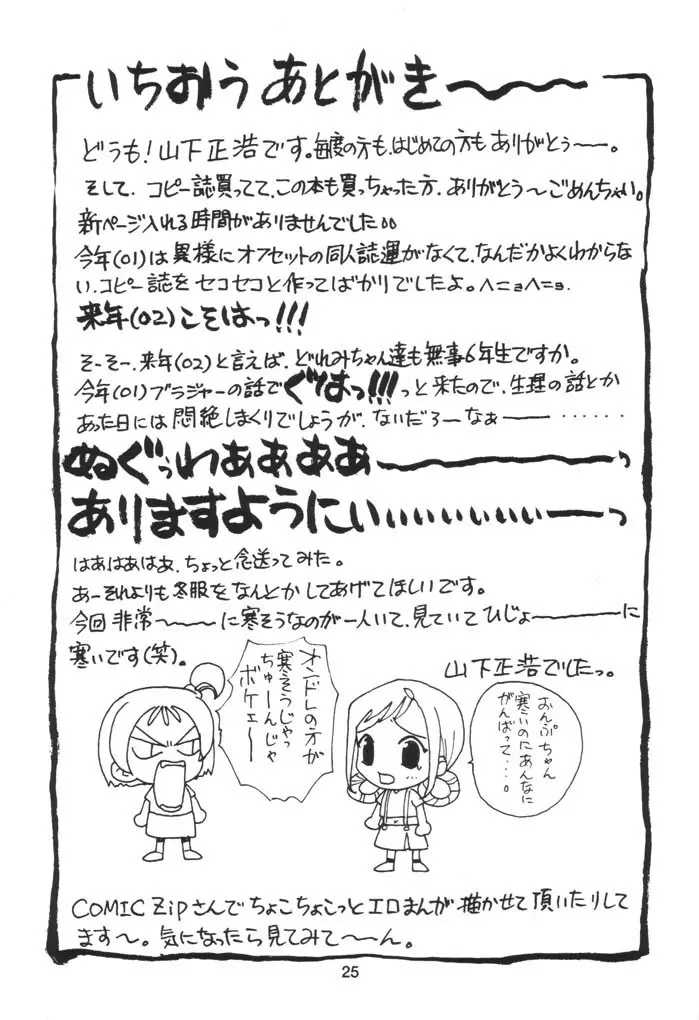 いちおう あとがき〜〜〜
どうも!山下正浩です。毎度の方も、はじめての方もありがとぅ──。
そして、コピー誌買ってて、この本も買っちゃった方、ありがとう〜ごめんちゃい。
新ページ入れる時間がありませんでした。。
今年(01)は異様にオフセットの同人誌運がなくて、なんだかよくわからな
い、コピー誌をセコセコと作ってばかりでしたよ。ヘニョヘニョ。
来年(02)こそはっ!!!
そーそー、来年(02)と言えば、どれみちゃん達も無事6年生ですか。
今年(01)ブラジャーの話でぐはっ!!!っと来たので、生理の話とか
あった日には悶絶しまくりでしょうが、ないだろーなぁ───‥‥‥
ぬぐっわぁぁぁぁぁ〜〜〜〜っ
ありますようにぃぃぃぃぃぃぃぃ──っ
はあはあはぁ、ちょっと念送ってみた。
あーそれよりも冬服をなんとかしてあげてほしいです。
今回非常〜〜〜に寒そうなのが一人いて、見ていてひじょ────に
寒いです(笑)。
山下正浩でしたっ。
オンドレの方が
寒そうじゃっ
ちゅーんじゃ
ボケェ〜
おんぷちゃん
寒いのにあんなに
がんばって・・・。
COMIC Zipさんでちょこちょこっとエロまんが描かせて頂いたりして
ます〜。気になったら見てみて〜〜ん。
25